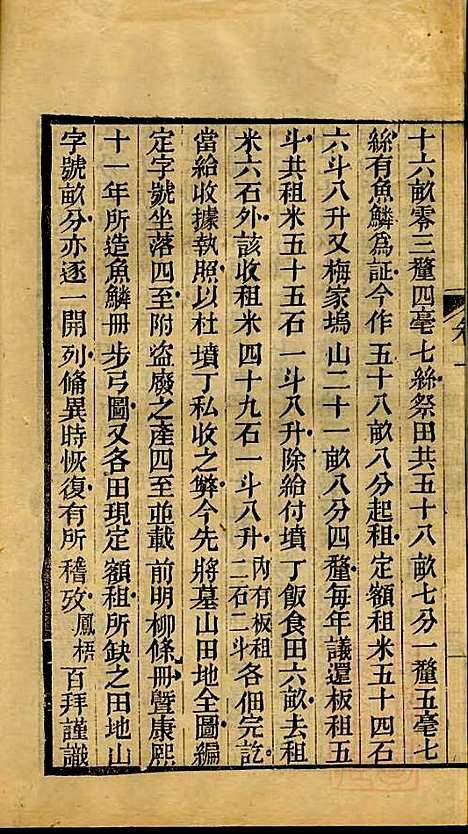 十六畝零三釐四毫七絲祭田共五十八畝七分一釐五毫七
絲有魚鱗爲証今作五十八畝八分起租定額租米五十四石
六斗八升又梅家塢山二十一畝八分四釐每年議還板租五
斗共租米五十五石一斗八升除給付墳丁飯食田六畝去租
米六石外該收租米四十九石一斗八升內有板租二石二斗各佃完訖
當給收據執照以杜墳丁私收之弊今先將墓山田地全圖編
定字號坐落四至附盜廢之產四至並載前明柳條冊暨康熙
十一年所造魚鱗冊步弓圖又各田現定額租所缺之田地山
字號畝分亦逐一開列備異時恢復有所稽攷鳳梧百拜謹識